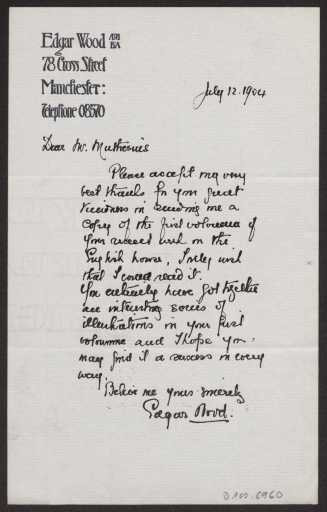 Edgar Wood ARI BA
78 Cross Street
Manchester:
Telephone 08570
July 12. 1904
Dear Mr. Muthesius
Please accept my very
best thanks for your great
kindness in sending me a
copy of the first volume of
your recent work on the
English house, I only wish
that I could read it.
You certainly have got together
an interesting series of
illustrations in your first
volumme and I hope you
may find it a success in every
way.
Believe me yours sincerely
Edgar Wood.